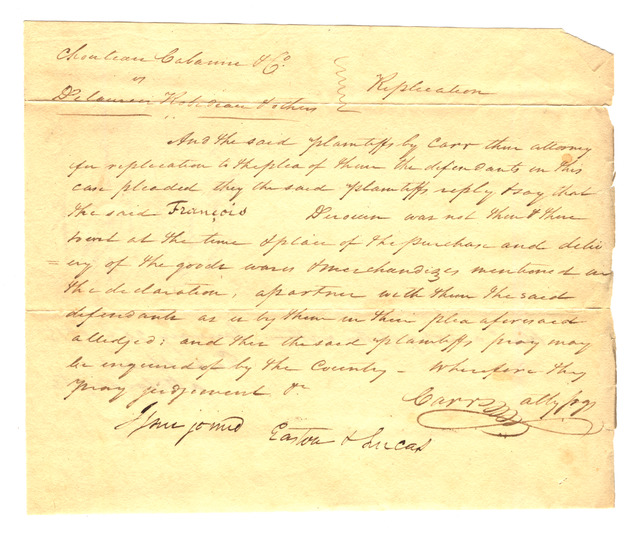 Chouteau Cabanne & Co.
vs
Delaurier Robidoux & others
Replication
1
And the said plaintiffs by Carr their attorney
for replication to the plea of them the defendants in this
case pleaded they the said plaintiffs reply & say that
the said François Derouin was not then & there
to wit at the time & place of the purchase and deliv
=ery of the goods wares & merchandizes mentioned in
the declaration, a partner with them the said
defendants as is by them in their plea aforesaid
alledged; and this the said plaintiffs pray may
be enquired of by the Country – Wherefore they
pray judgement &c
Carr atty for
Issue joined
Easton & Lucas